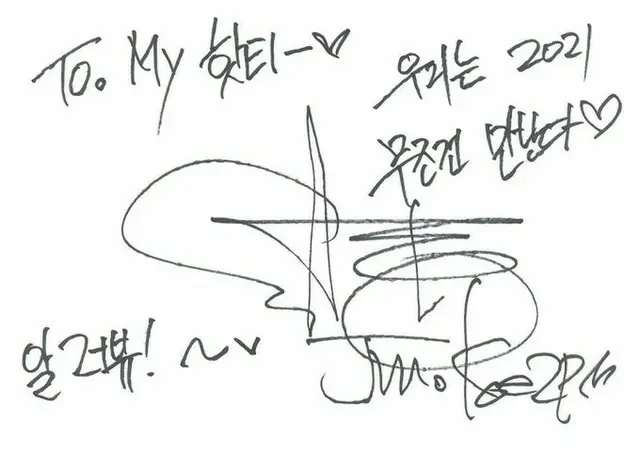 To. My 핫티~♡
우리는 2021
무조건 만난다♡
알러뷰! ~♥
2PM